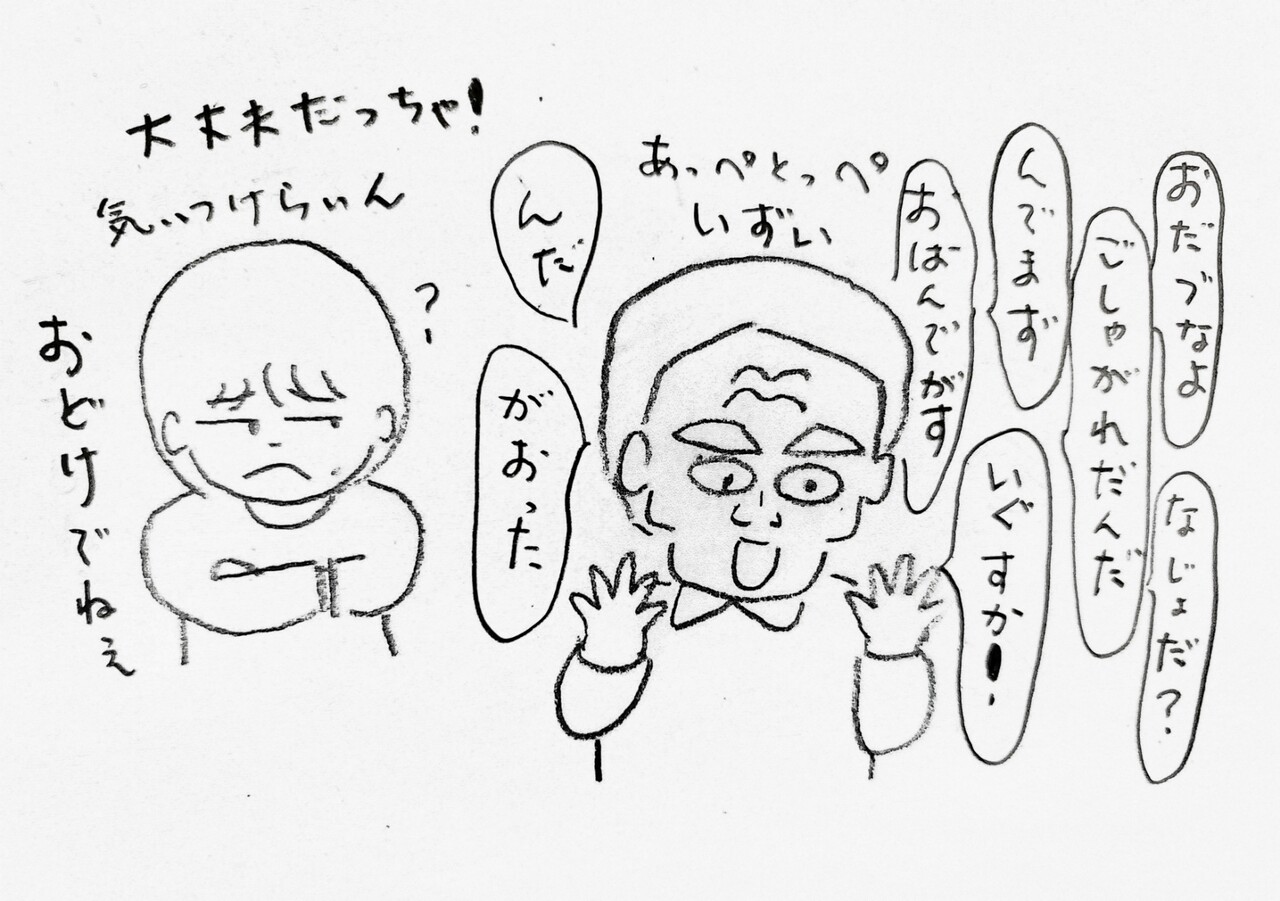 大丈夫だっちゃ!
気いつけらいん
おどけでねぇ
?
んだ
がおった
あっぺとっぺ
いずい
おはんでがす
んでまず
いぐすか!
ごしゃがれだんだ
おだづなよ
なじょだ?